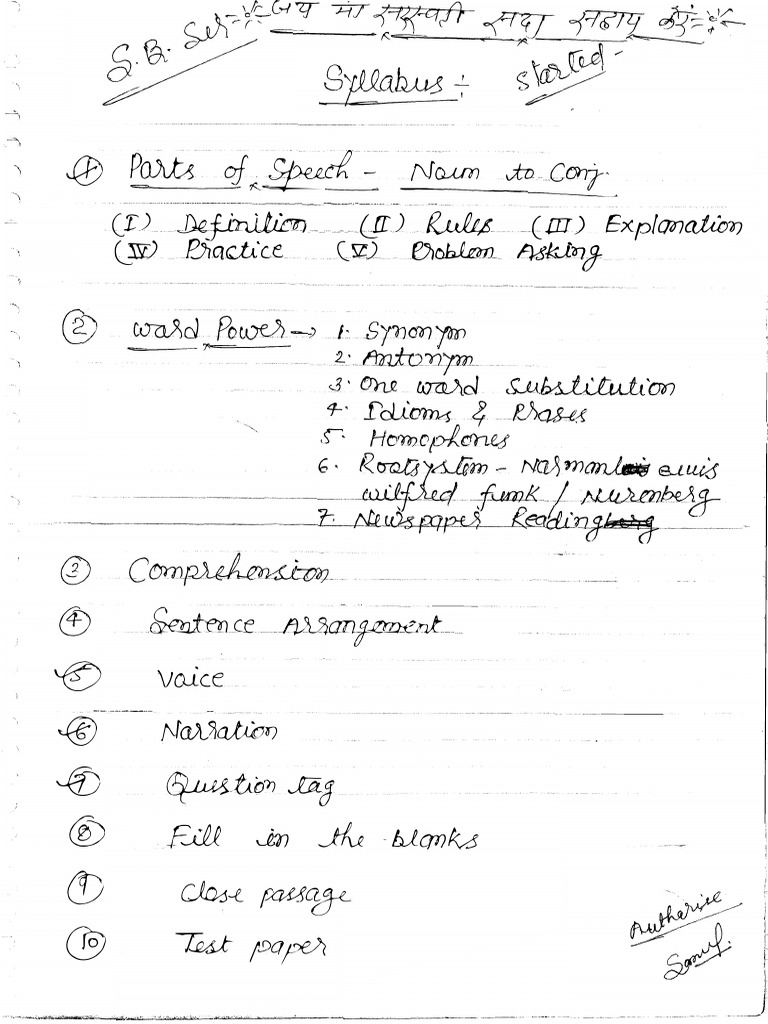 S.B. Ser जय माँ सरस्वती सदा सहाय करें
Syllabus :- Started -
1 Parts of Speech - Noun to Conj.
(I) Definition (II) Rules (III) Explanation
(IV) Practice (V) Problem Asking
2 Word Power → 1. Synonym
2. Antonym
3. One word substitution
4. Idioms & Prases
5. Homophones
6. Rootsystem - Narman
wilfred funk / Nurenberg
7. Newspaper Reading
3 Comprehension
4 Sentence Arrangement
5 Voice
6 Narration
7 Question tag
8 Fill in the blanks
9 Close passage
10 Test paper
Autharise